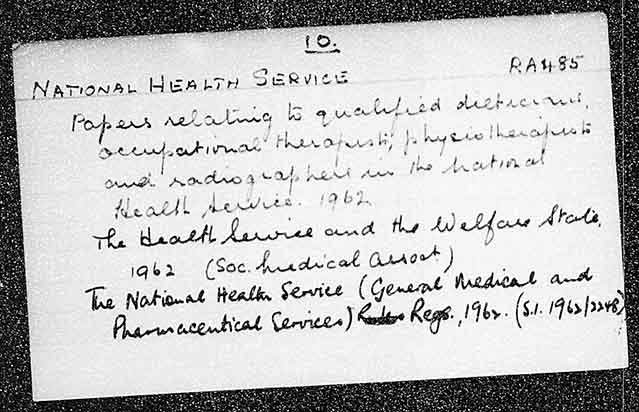 10.
NATIONAL HEALTH SERVICE RA485
Papers relating to qualified dieticians,
occupational therapists, physiotherapists
and radiographers in the National
Health Service. 1962
The Health Service and the Welfare State,
1962 (Soc. Medical Assoct.)
The National Health Service (General Medical and
Pharmaceutical Services) Regs., 1962. (S.I. 1962/2248)